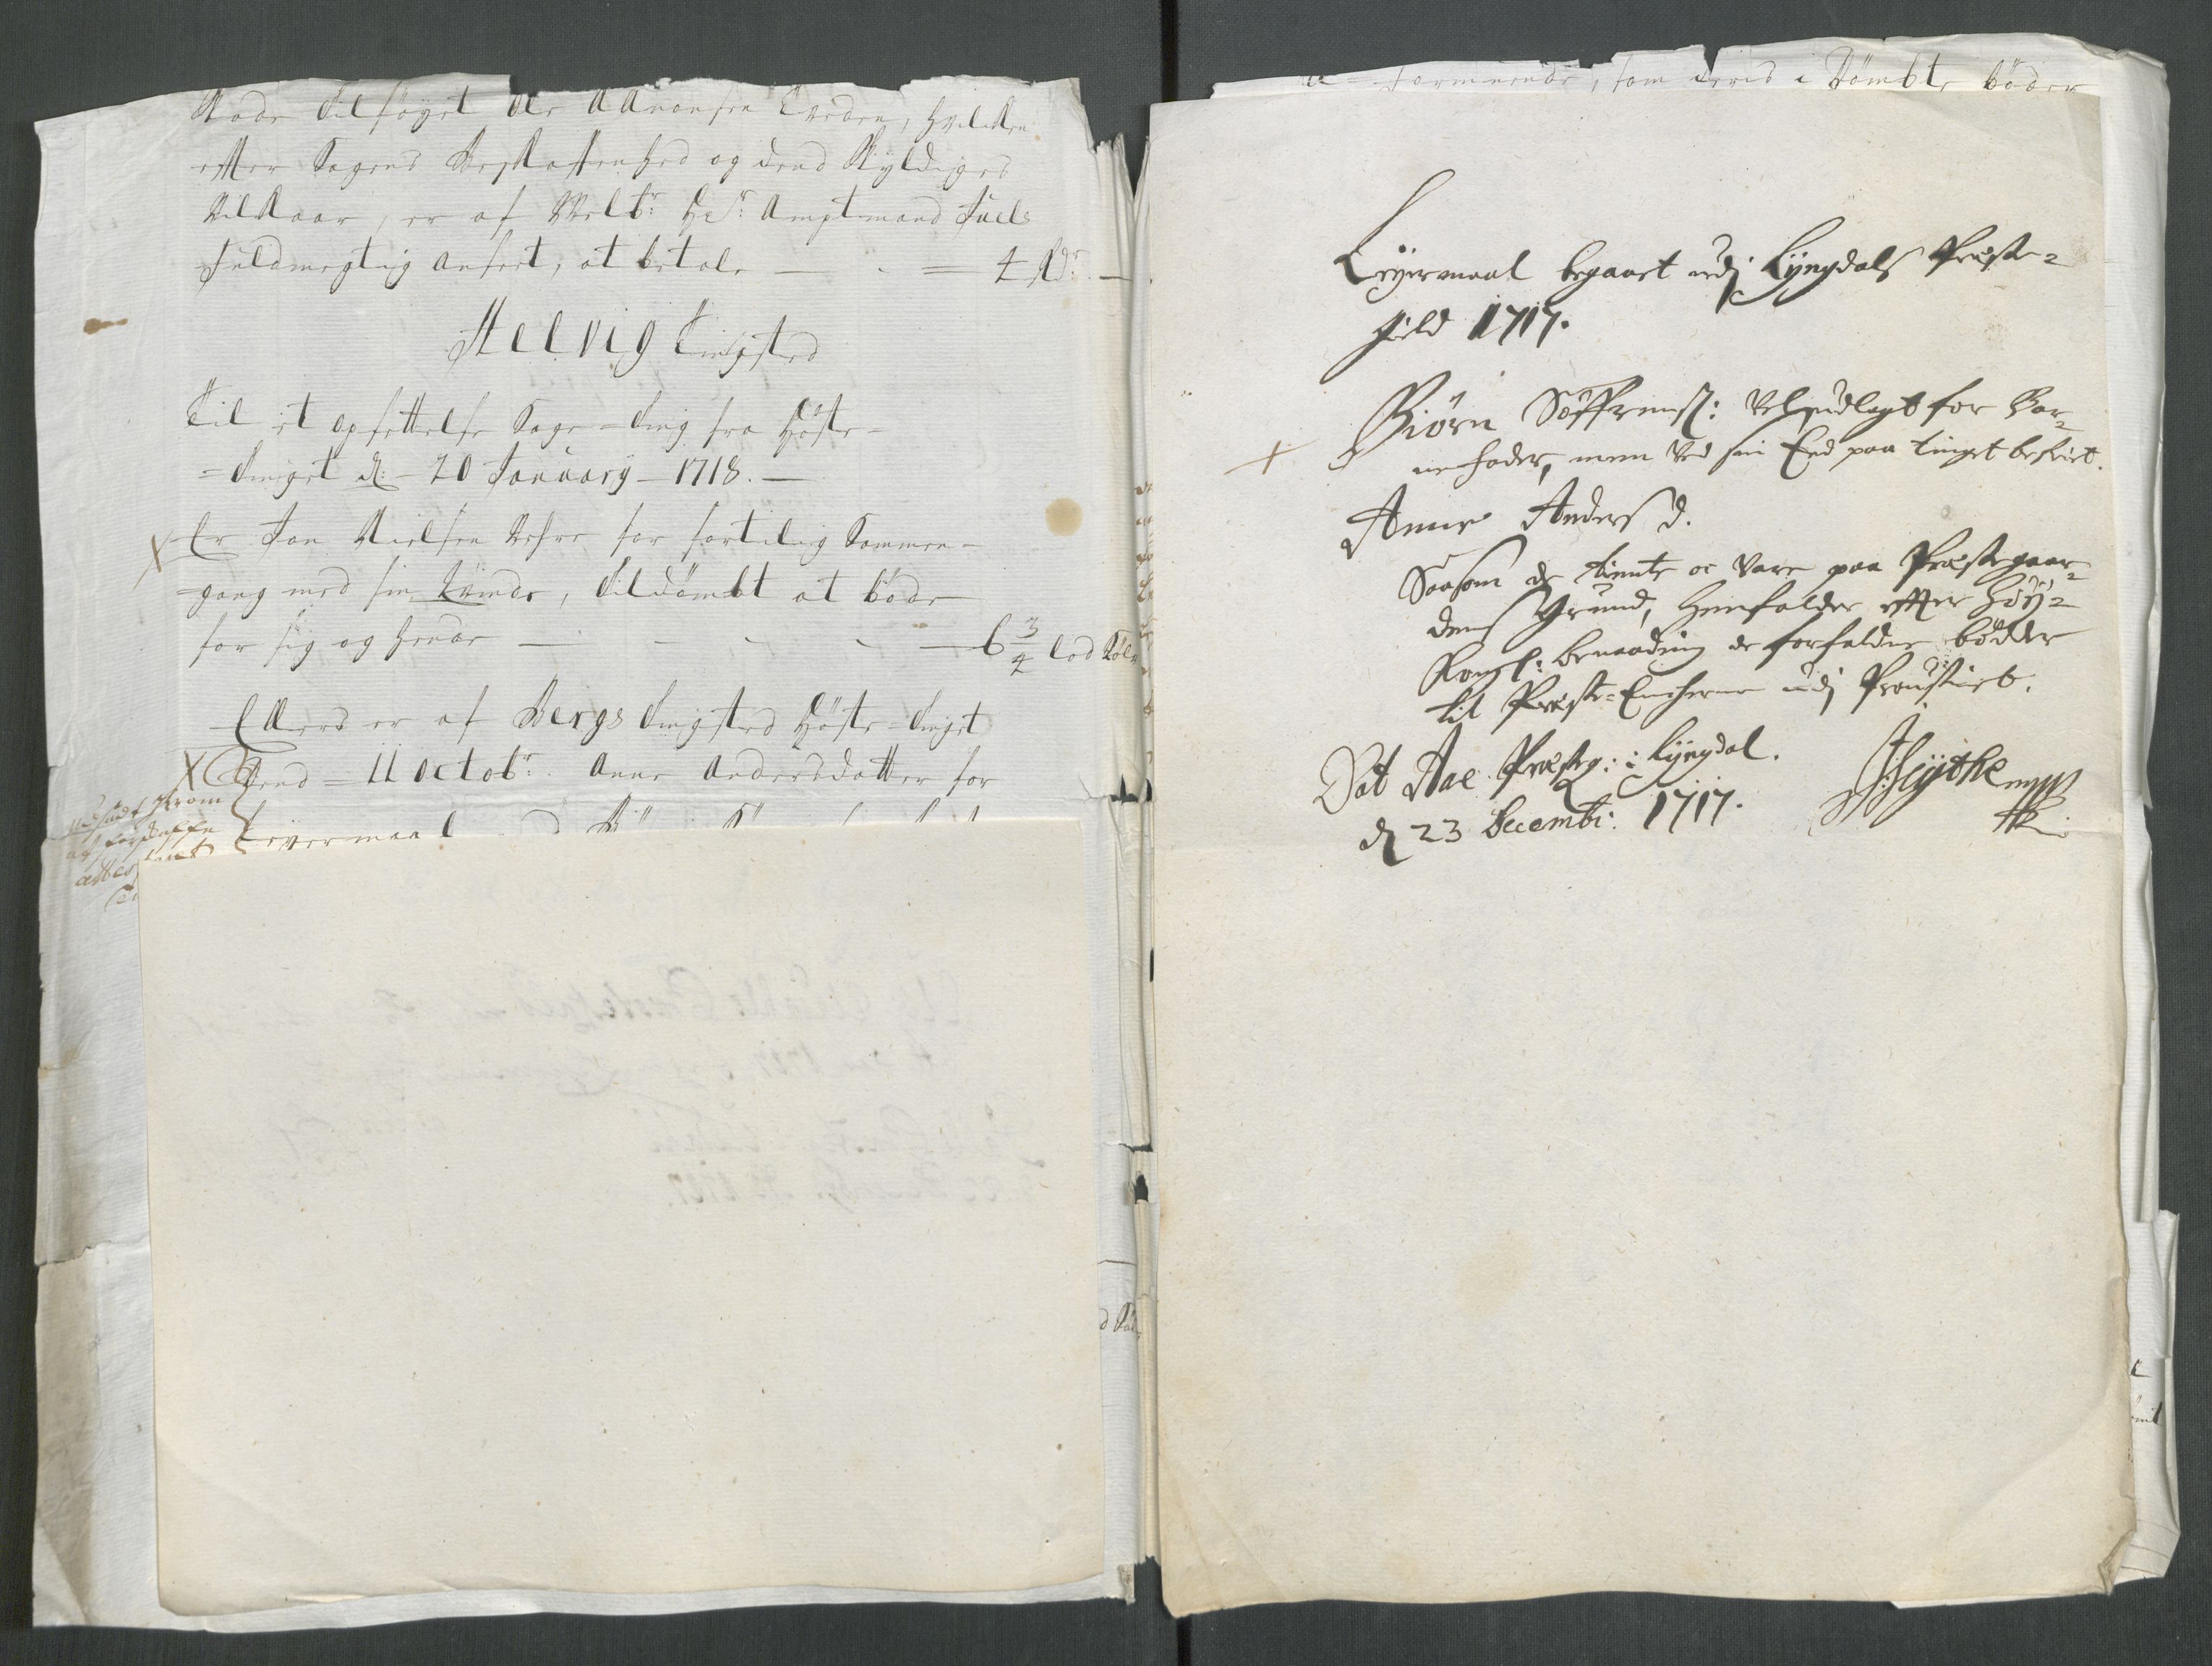 Skade tilføyet Ole Aanonsen Qveden, hvilken
efter Sagens Beskaffenhed og dend Skyldiges
Vilkaar, er af Welbr: Hr: Amptmand Juels
fuldmegtig anført, at betale — - = 4 Rdr. —
Helvig Tingsted
Til et opsettelse Sage-ting fra Høste-
=tinget d: 20 January 1718. —
Er Jon Nielsen Vehre for fortilig Sammen-
gang med sin Qvinde, tildømbt at böde
for sig og hende — - - — 6 3/4 lod Sölv
Ellers er af Bergs tingsted Höste-tinget
dend 11 Octobr: Anne Andersdatter for
Leyermaal
som deris i dömbte böder
Leyermaal begaaet udj Lÿngdals Præste=
gield 1717.
Biörn Söffrens: Vel udlagt for Bar=
nefader, men ved sin Eed paa tinget befriet.
Anne Anders d.
Saasom de tiente oc vare paa Præstegaar=
dens Grund, henfalder effter Höy=
Kongl: benaading de forfaldne bödder
til Præste-Enckerne udj Proustiet.
Dat Aae Præstg: i Lÿngdal.
d 23 Decembr: 1717.